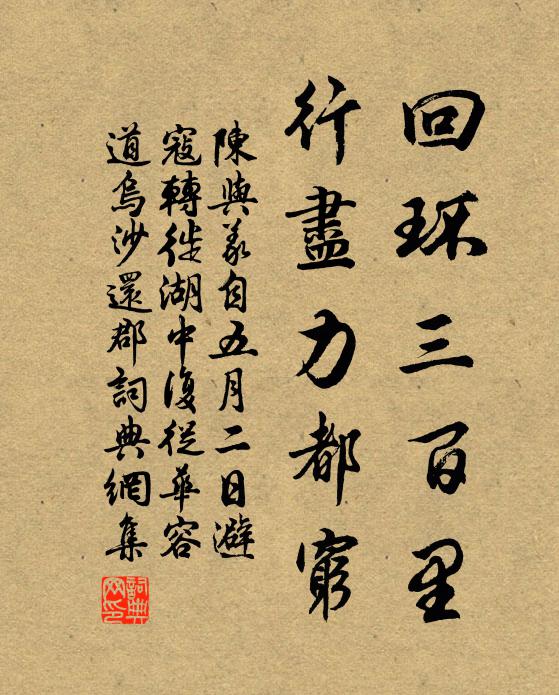 回环三百里
行盡力都窮
陳與義自五月二日避
寇轉徙湖中復從華容
道烏沙還郡詞典網集
詞典網印